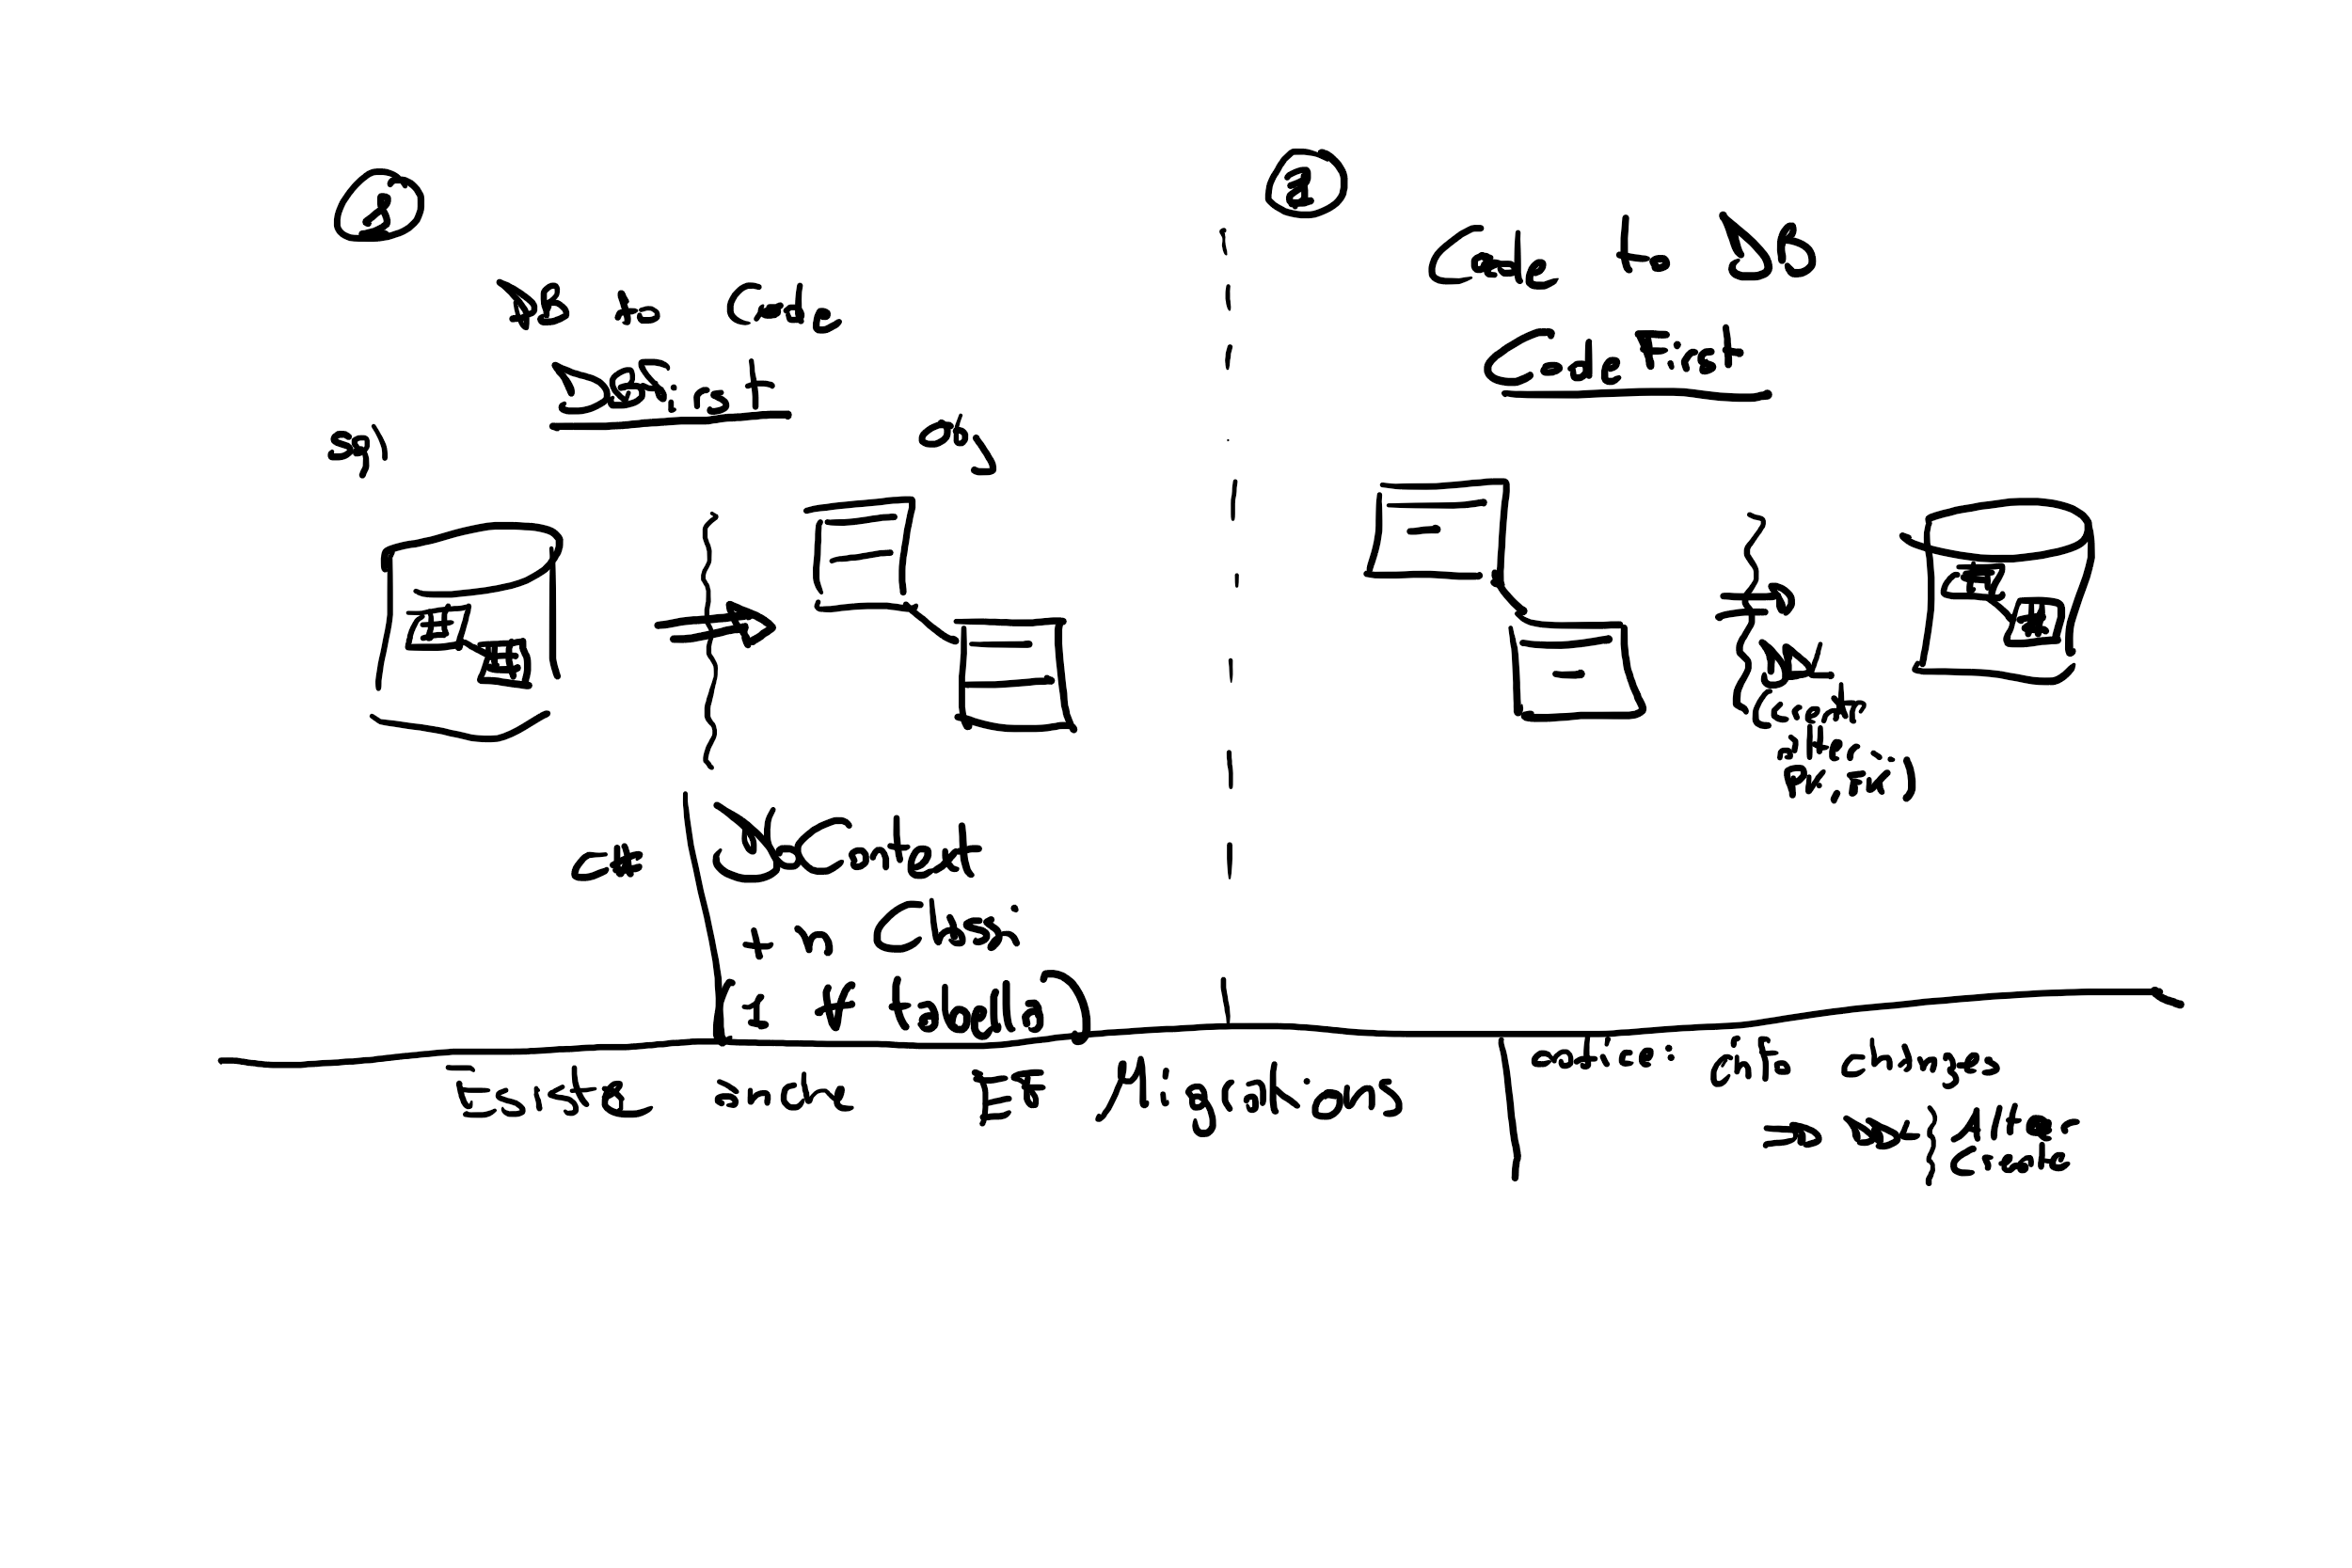 DB to Code
DBFirst
sql
obj
c#
DbContext
+ n Classi
(1 ∀ tabella)
Code to DB
CodeFirst
DDL
(Create
alter...
PK, FK)
Esiste anche EF Migrations
changes
=> DDL { Alter
Create